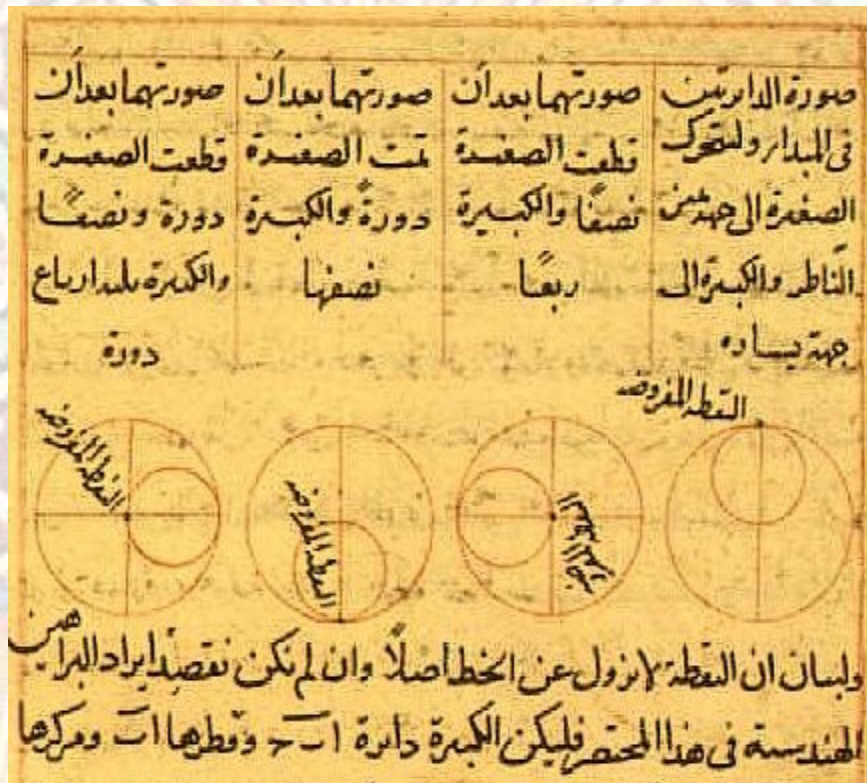 صورة الدائرتين
في المبدا ولتتحرك
الصغيرة الى جهة يمين
الناظر والكبيرة الى
جهة يساره
صورتهما بعد ان
قطعت الصغيرة
نصفًا والكبيرة
ربعًا
صورتهما بعد ان
تمت الصغيرة
دورةً والكبيرة
نصفها
صورتهما بعد ان
قطعت الصغيرة
دورة ونصفًا
والكبيرة ثلثة ارباع
دورة
النقطة المفروضة
النقطة المفروضة
النقطة المفروضة
ولبيان ان النقطة لا تزول عن الخط اصلاً وان لم نكن نقصد ايراد البراهين
الهندسية في هذا المختصر فليكن الكبيرة دائرة ا ب ح وقطرها ا ب ومركزها